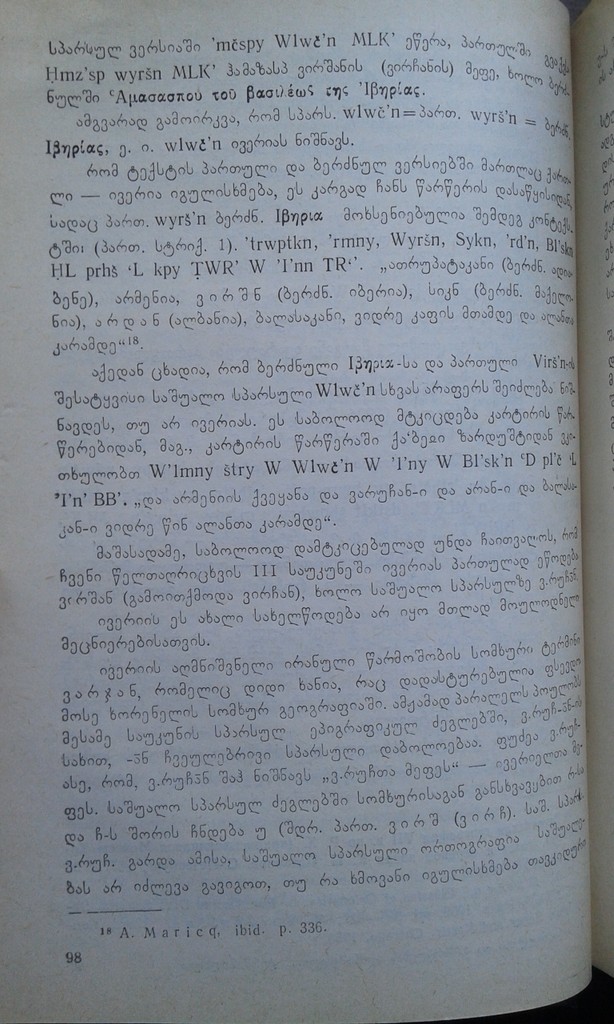 სპარსულ ვერსიაში 'mčspy Wlwč'n MLK' ეწერა, პართულში გვაქვს
Ḥmz'sp wyršn MLK' ჰამაზასპ ვირშანის (ვირჩანის) მეფე, ხოლო ბერძ-
ნულში ‘Αμασασπου του βασιλέως της ’Ιβηρίας.
ამგვარად გამოირკვა, რომ სპარს. wlwč'n=პართ. wyrš'n = ბერძნ.
Ιβηρίας, ე. ი. wlwč'n ივერიას ნიშნავს.
რომ ტექსტის პართული და ბერძნულ ვერსიებში მართლაც ქართ-
ლი — ივერია იგულისხმება, ეს კარგად ჩანს წარწერის დასაწყისიდან,
სადაც პართ. wyrš'n ბერძნ. Ιβηρια მოხსენიებულია შემდეგ კონტექს-
ტში: (პართ. სტრიქ. 1). 'trwptkn, 'rmny, Wyršn, Sykn, 'rd'n, Bl'skn
ḤL prhš ‘L kpy ṬWR' W 'l'nn TR‘'. „ათრუპატაკანი (ბერძნ. ადია-
ბენე), არმენია, ვირშნ (ბერძნ. იბერია), სიკნ (ბერძნ. მაქელო-
ნია), არდან (ალბანია), ბალასაკანი, ვიდრე კაფის მთამდე და ალანთა
კარამდე“¹⁸.
აქედან ცხადია, რომ ბერძნული Ιβηρια-სა და პართული Virš'n-ის
შესატყვისი საშუალო სპარსული Wlwč'n სხვას არაფერს შეიძლება ნიშ-
ნავდეს, თუ არ ივერიას. ეს საბოლოოდ მტკიცდება კარტირის წარ-
წერებიდან, მაგ., კარტირის წარწერაში ქა'ბეი ზარდუშტიდან ვკი-
თხულობთ W'lmny štry W Wlwč'n W 'l'ny W Bl'sk'n ‘D pl'č ‘L
'l'n' BB'. „და არმენიის ქვეყანა და ვარუჩან-ი და არან-ი და ბალასა-
კან-ი ვიდრე წინ ალანთა კარამდე“.
მაშასადამე, საბოლოოდ დამტკიცებულად უნდა ჩაითვალოს, რომ
ჩვენი წელთაღრიცხვის III საუკუნეში ივერიას პართულად ეწოდება
ვირშან (გამოითქმოდა ვირჩან), ხოლო საშუალო სპარსულზე ვ.რუჩან.
ივერიის ეს ახალი სახელწოდება არ იყო მთლად მოულოდნელი
მეცნიერებისათვის.
ივერიის აღმნიშვნელი ირანული წარმოშობის სომხური ტერმინი
ვარჯან, რომელიც დიდი ხანია, რაც დადასტურებულია ფსევდო
მოსე ხორენელის სომხურ გეოგრაფიაში. ამჟამად პარალელს პოულობს
მესამე საუკუნის სპარსულ ეპიგრაფიკულ ძეგლებში, ვ.რუჩ-ან-ის
სახით, -ან ჩვეულებრივი სპარსული დაბოლოებაა. ფუძეა ვ.რუჩ.
ასე, რომ, ვ.რუჩან შაჰ ნიშნავს „ვ.რუჩთა მეფეს“ — ივერიელთა მე-
ფეს. საშუალო სპარსულ ძეგლებში სომხურისაგან განსხვავებით რ-სა
და ჩ-ს შორის ჩნდება უ (შდრ. პართ. ვირშ (ვირჩ). საშ. სპარს.
ვ.რუჩ. გარდა ამისა, საშუალო სპარსული ორთოგრაფია საშუალე-
ბას არ იძლევა გავიგოთ, თუ რა ხმოვანი იგულისხმება თავკიდური
¹⁸ A. Maricq, ibid. p. 336.
98